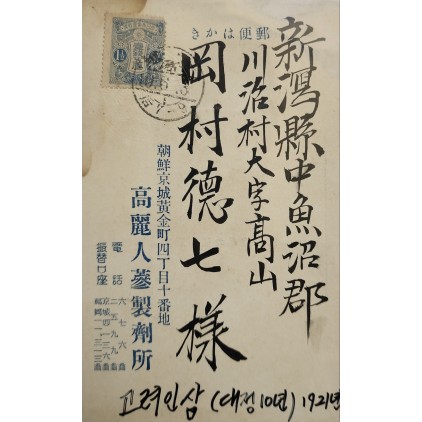 郵便はかき
新潟縣中魚沼郡
川治村大字髙山
岡村德七様
朝鮮京城黃金町四丁目十番地
高麗人蔘製劑所
電話
振替口座
고려인삼 (대정10년) 1921년